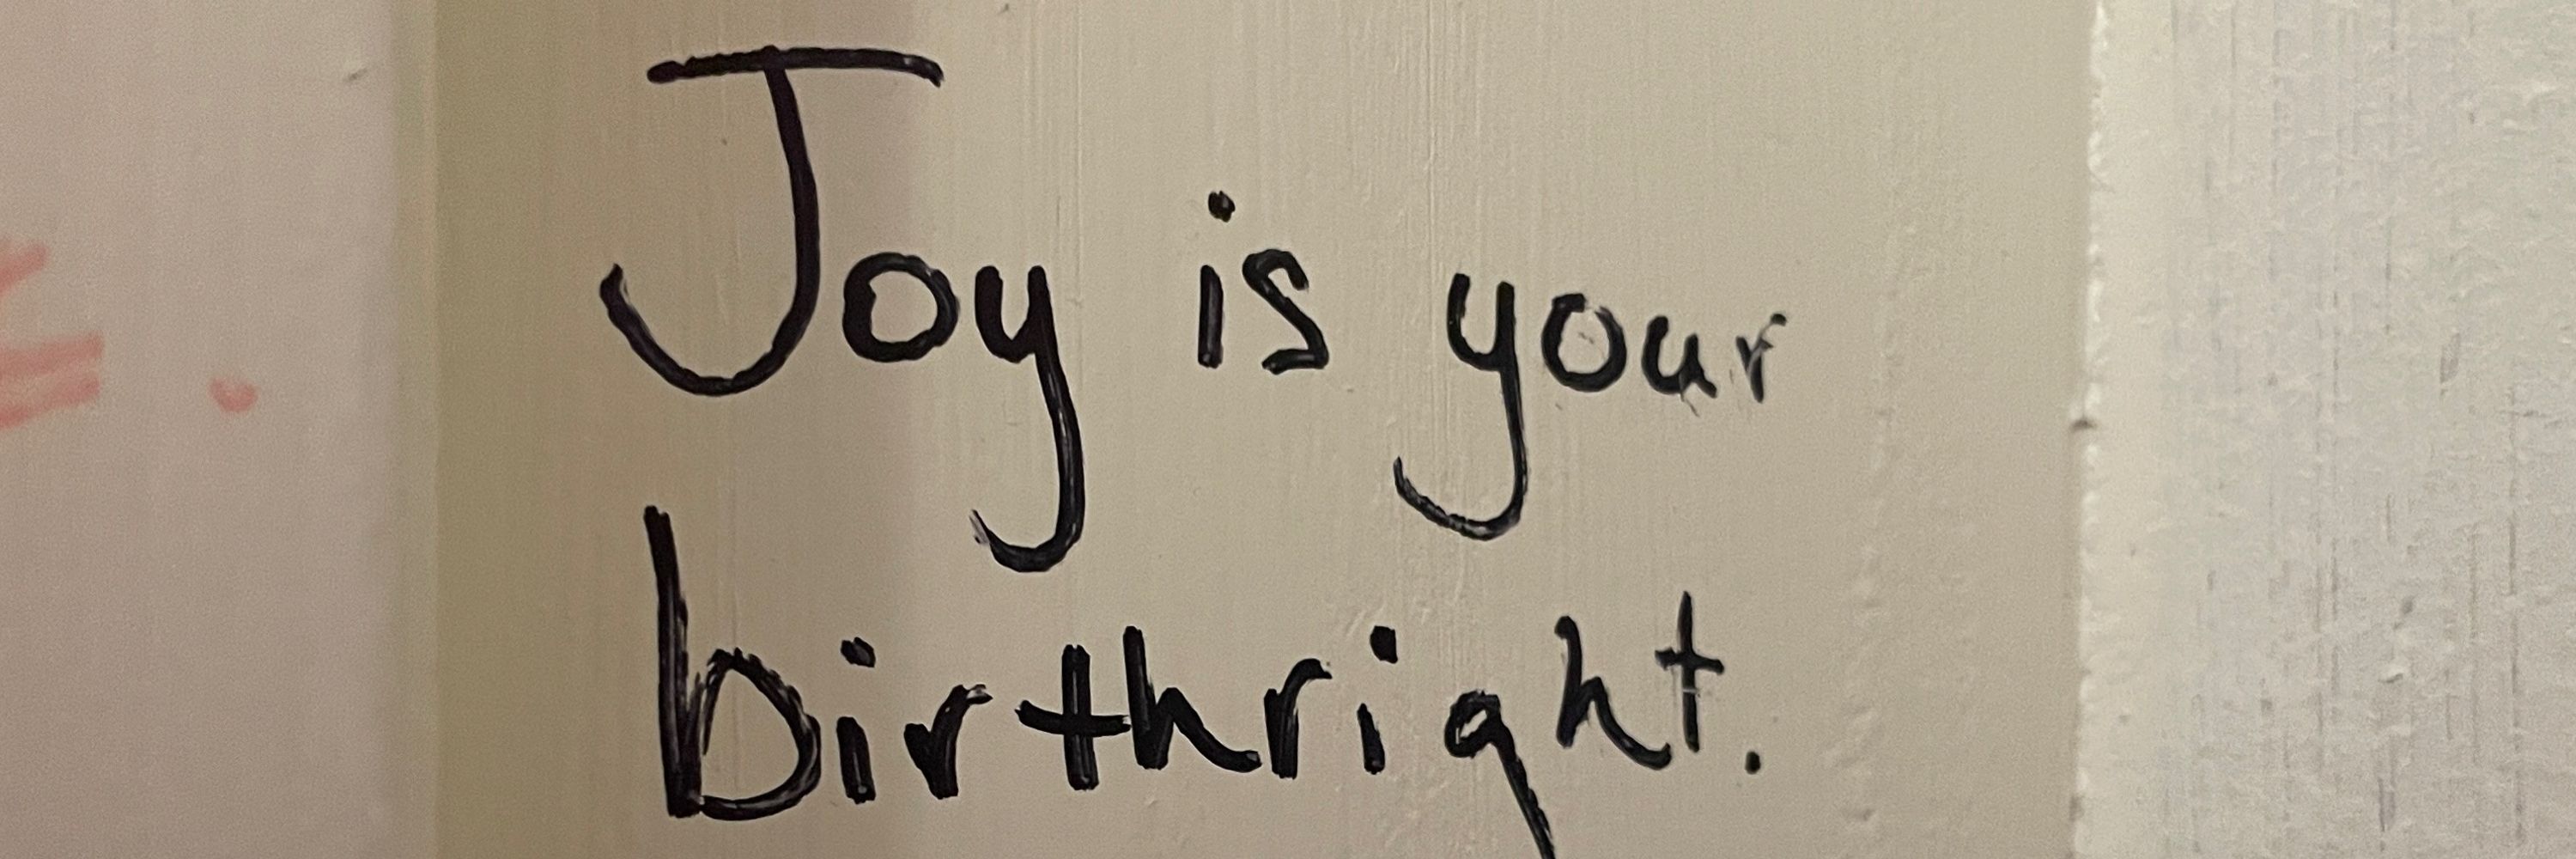 Joy is your
birthright.